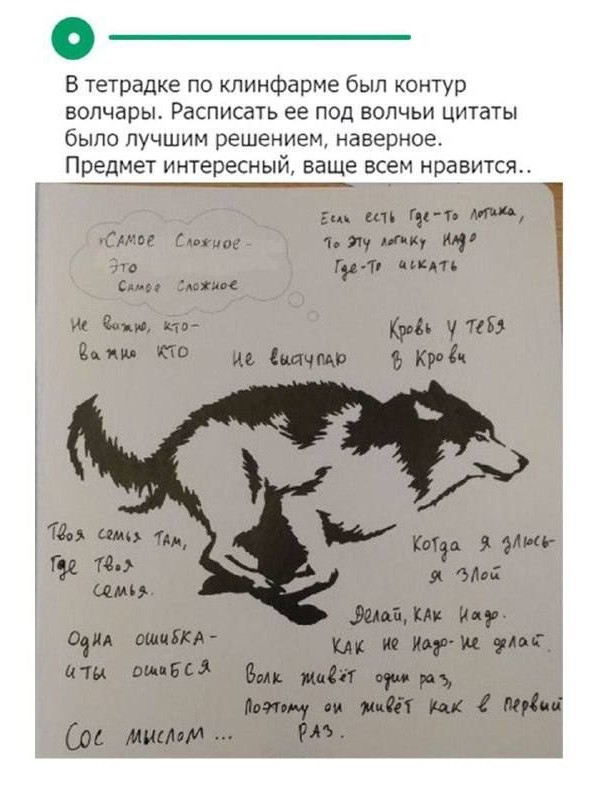 В тетрадке по клинфарме был контур
волчары. Расписать ее под волчьи цитаты
было лучшим решением, наверное.
Предмет интересный, ваще всем нравится..
Самое Сложное -
Это
Самое Сложное
Если есть Где-то логика,
То эту логику Надо
Где-То искать
Не важно, кто-
Важно кто
Не выступаю
Кровь у тебя
В Крови
Твоя семья там,
Где твоя
семья.
Когда я злюсь-
я злой
Делай, как надо.
Как не надо-не делай.
Одна ошибка-
и ты ошибся
Волк живёт один раз,
Поэтому он живёт как в первый
раз.
Сос мыслом ...